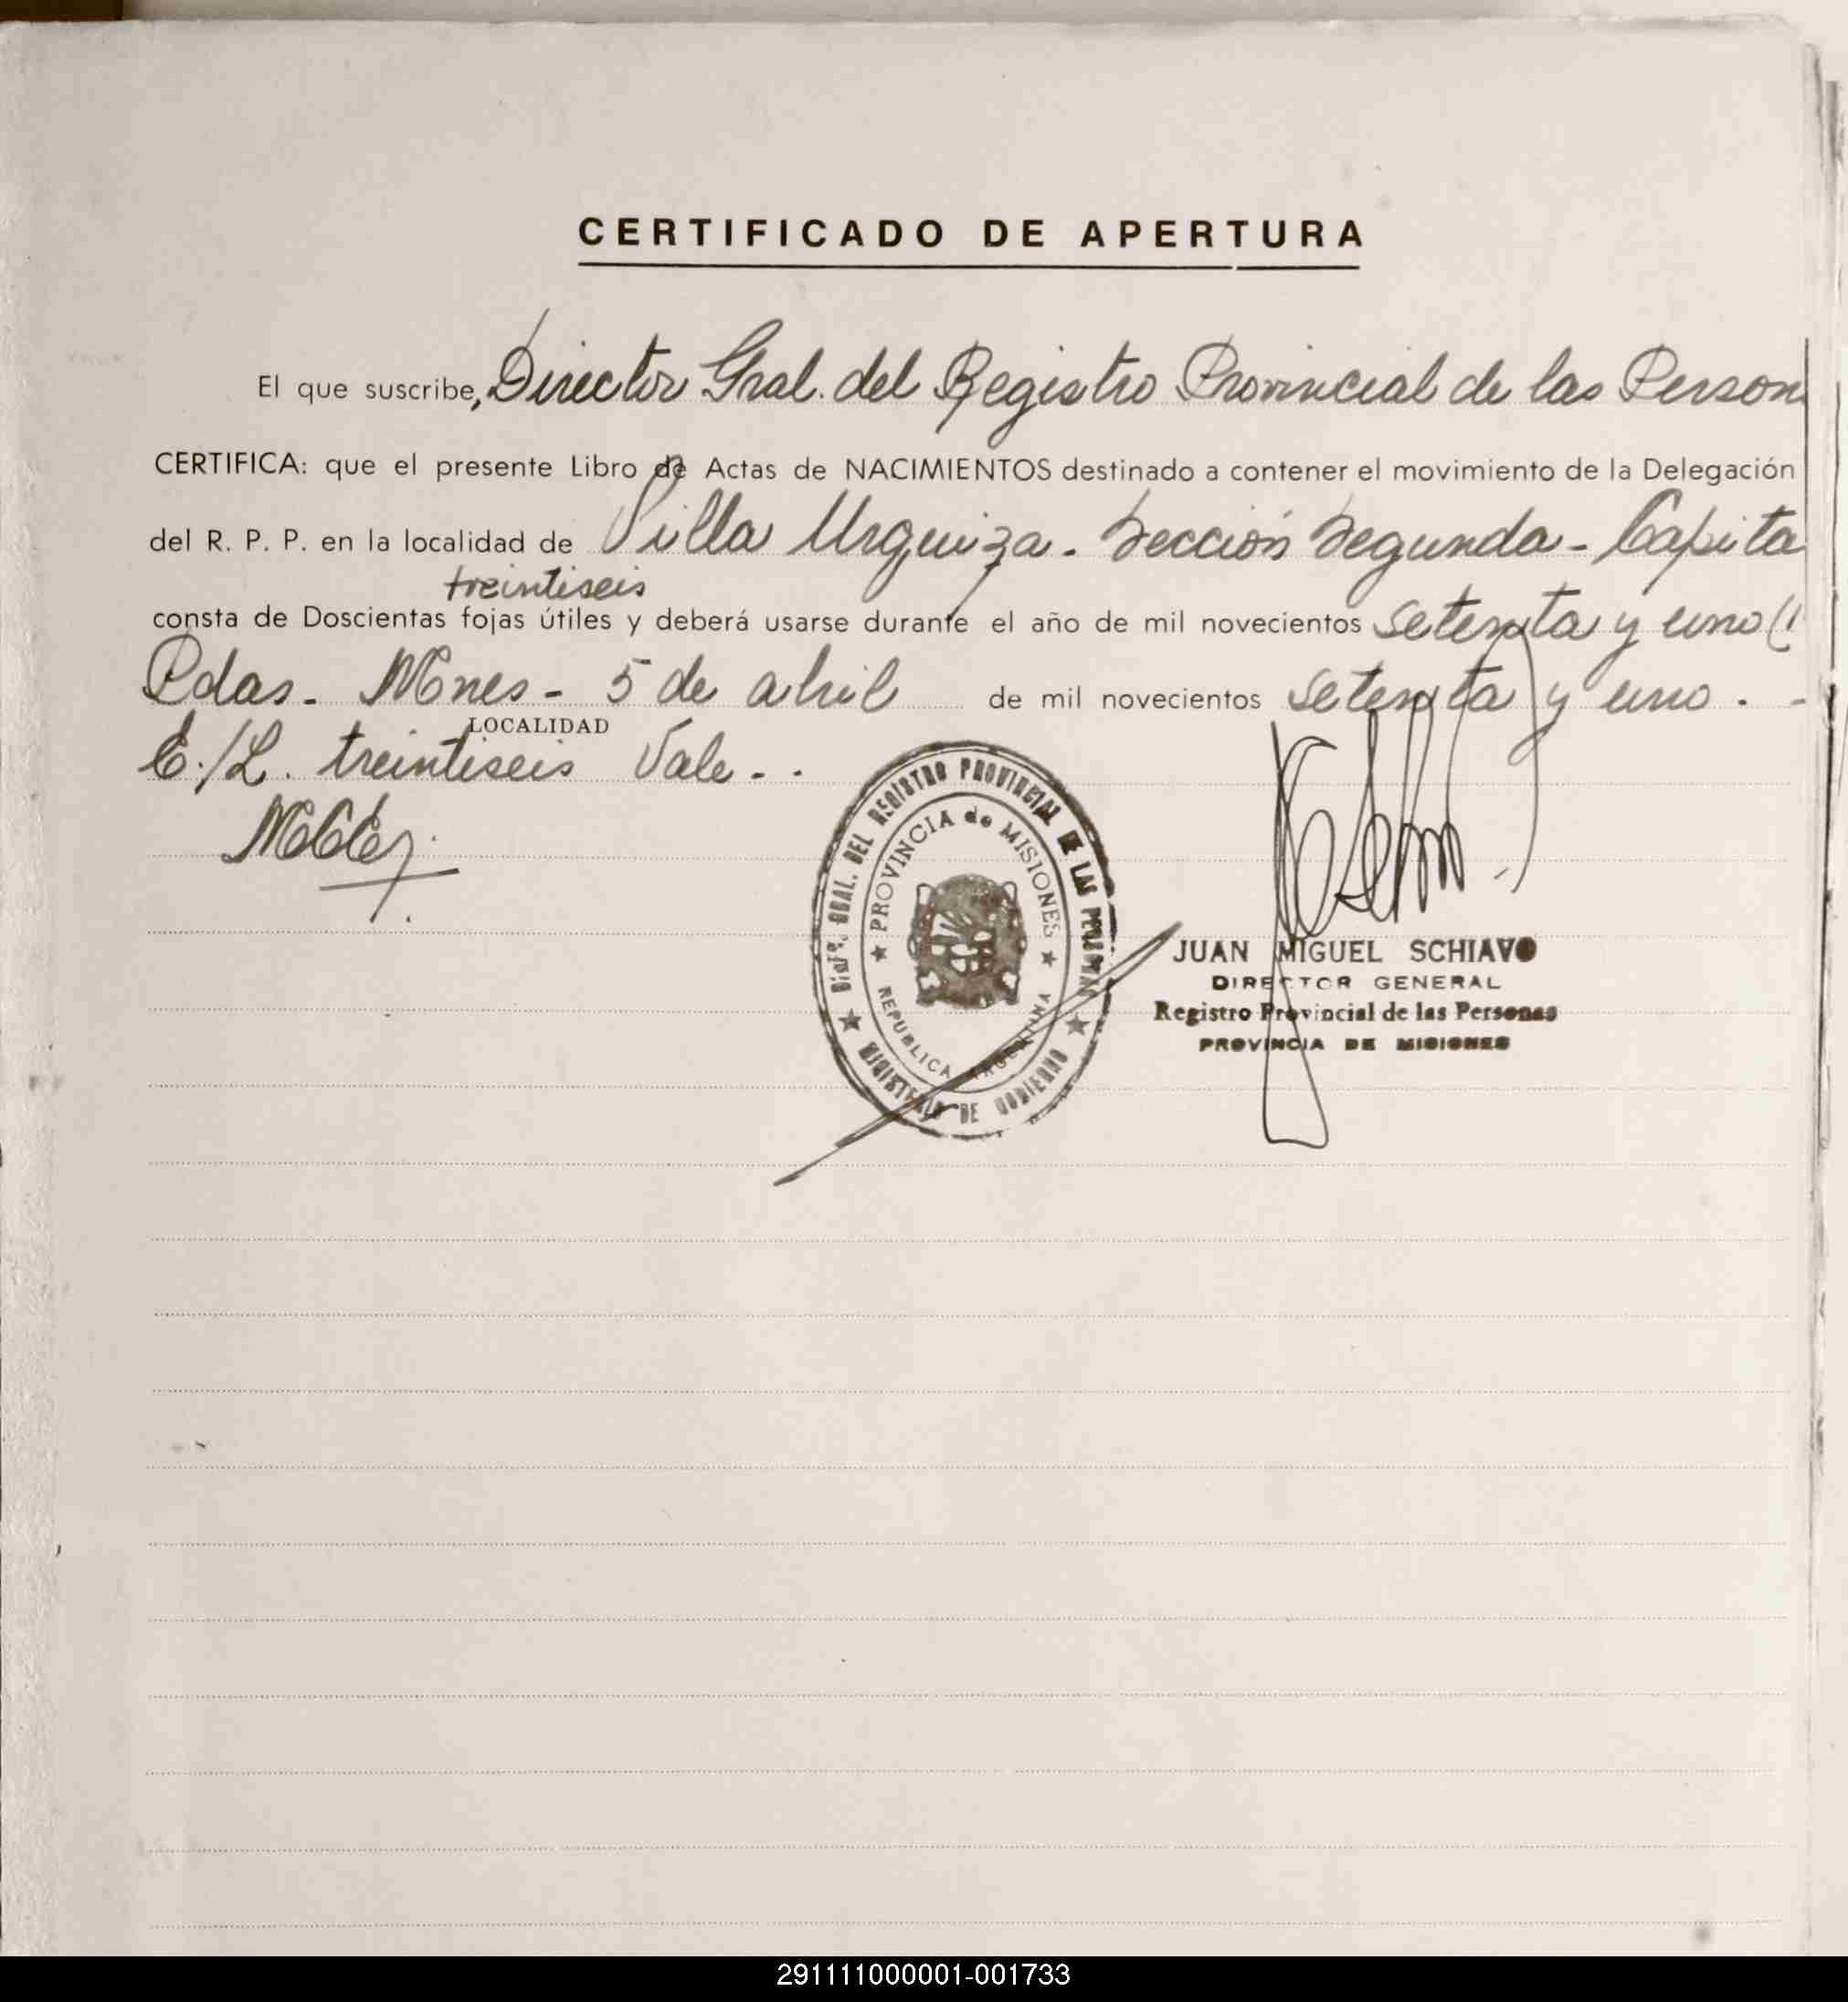 CERTIFICADO DE APERTURA
El que suscribe, Director Gral. del Registro Provincial de las Person
CERTIFICA: que el presente Libro de Actas de NACIMIENTOS destinado a contener el movimiento de la Delegación
del R. P. P. en la localidad de Villa Urquiza - Sección Segunda - Capita
treintiseis
consta de Doscientas fojas útiles y deberá usarse durante el año de mil novecientos setenta y uno (1
Pdas. Mnes - 5 de abril de mil novecientos setenta y uno. -
LOCALIDAD
E./L. treintiseis Vale - .
DIREC. GRAL. DEL REGISTRO PROVINCIAL DE LAS PERSONAS
PROVINCIA de MISIONES
REPUBLICA ARGENTINA
MINISTERIO DE GOBIERNO
JUAN MIGUEL SCHIAVO
DIRECTOR GENERAL
Registro Provincial de las Personas
PROVINCIA DE MISIONES
291111000001-001733